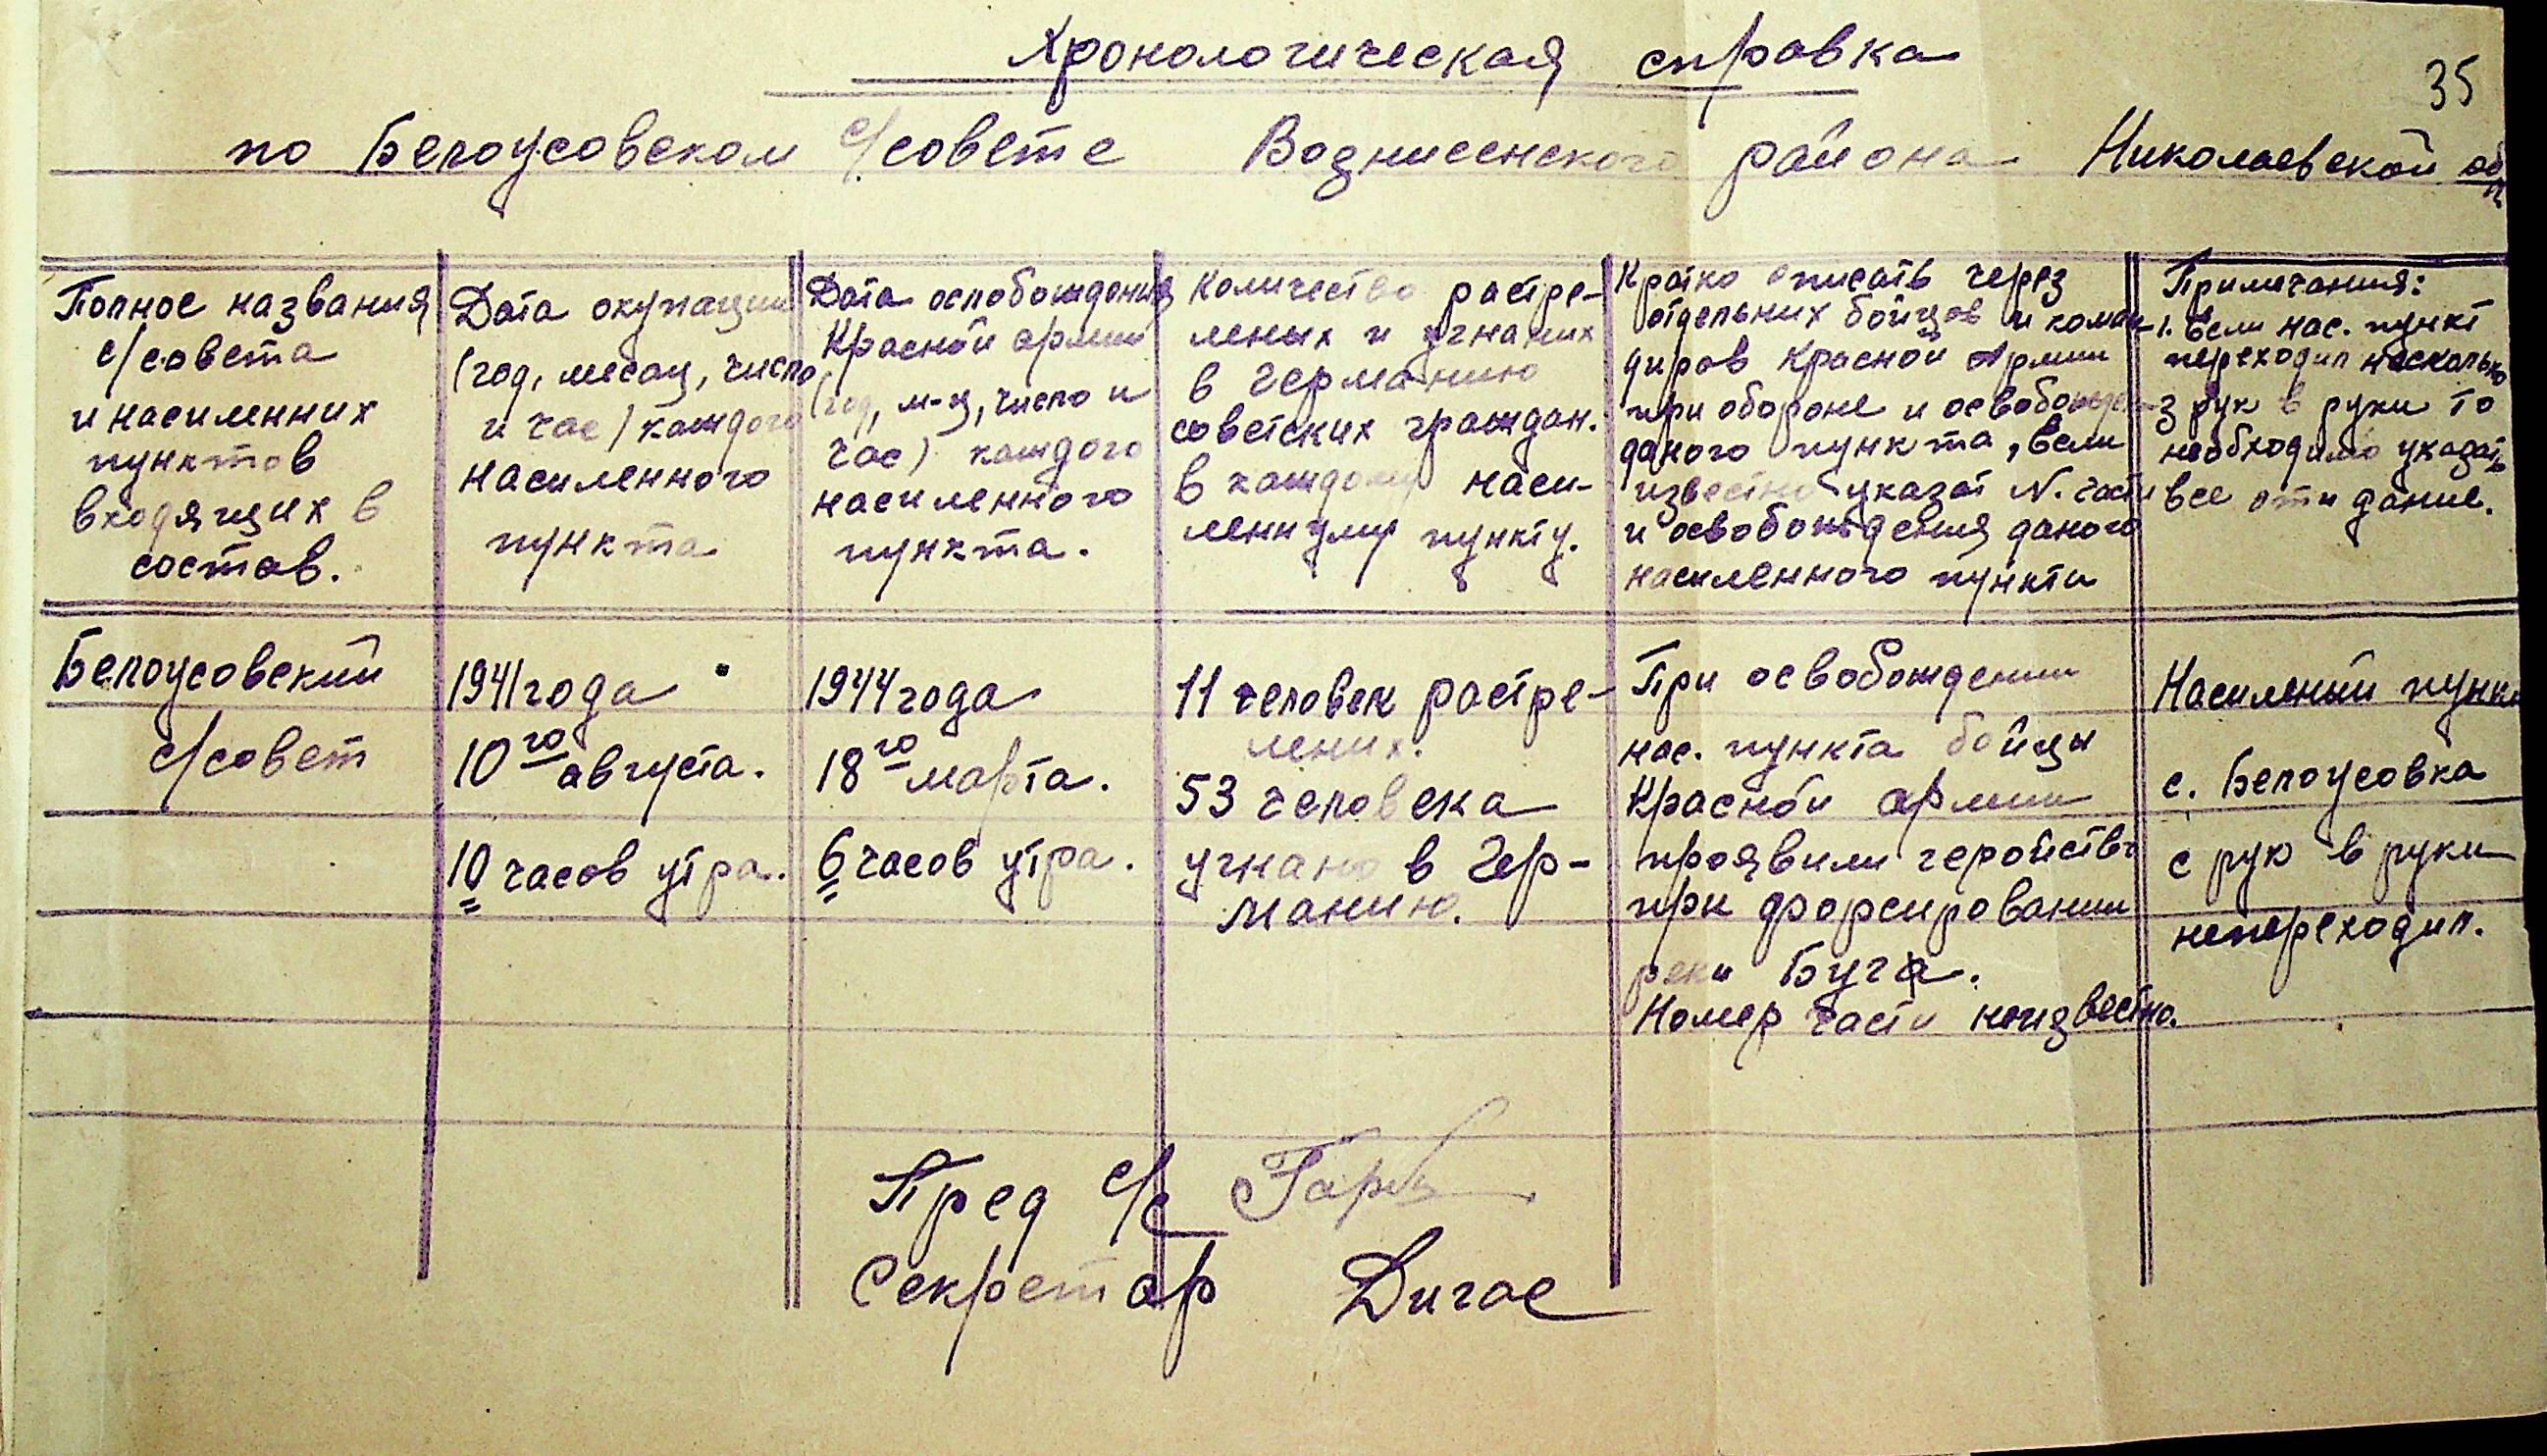 Хронологическая справка
35
по Белоусовском с/совете Вознисенского района Николаевской обл
Полное названия
с/совета
и насиленних
пунктов
входящих в
состав.
Дата окупации
(год, месац, число
и час) каждого
насиленного
пункта
Дата ослобождения
Красной армии
(год, м-ц, число и
час) каждого
насиленного
пункта.
Количество растре-
леных и угнаних
в Германию
советских граждан.
в каждому наси-
леннуму пункту.
Кратко описать через
отдельних бойцов и коман-
диров Красной Армии
при обороне и освобожд
даного пункта, если
известно указат N. части
и освобождения даного
насиленного пункти
Примичания:
1. Если нас. пункт
переходил насколько
з рук в руки то
необходимо указать
все эти дание.
Белоусовский
с/совет
1941 года
10го августа.
10 часов утра.
1944 года
18го марта.
6 часов утра.
11 человек растре-
лених.
53 человека
угнано в Гер-
манию.
При освобождении
нас. пункта бойцы
Красной армии
проявили геройство
при форсировании
реки Буга.
Номер части неизвестно.
Насиленый пункт
с. Белоусовка
с рук в руки
непереходил.
Пред с/с
Секретар Дигас